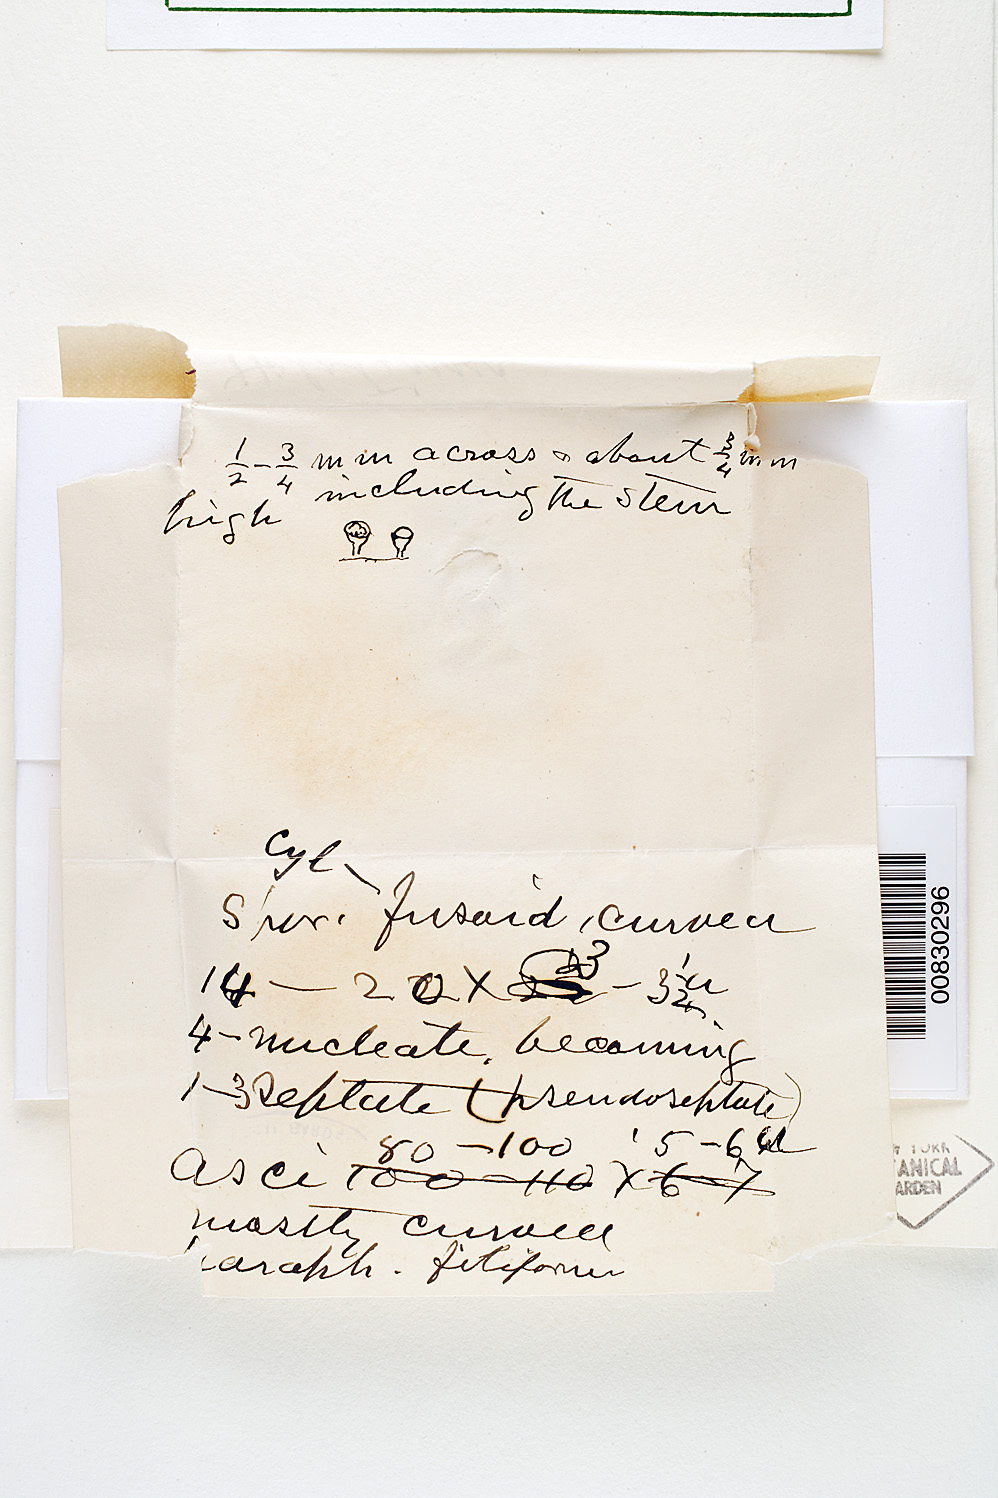 1/2 – 3/4 mm across & about 3/4 mm
high including the stem
Cyl
Spor. fusoid, curved
14 – 20 X 3 – 3 1/2 u
4-nucleate, becoming
1-3 septate (pseudoseptate)
80 – 100 5 – 6 u
Asci 100 – 110 X 6 – 7
mostly curved
paraph. filiform
00830296
YORK
TANICAL
ARDEN